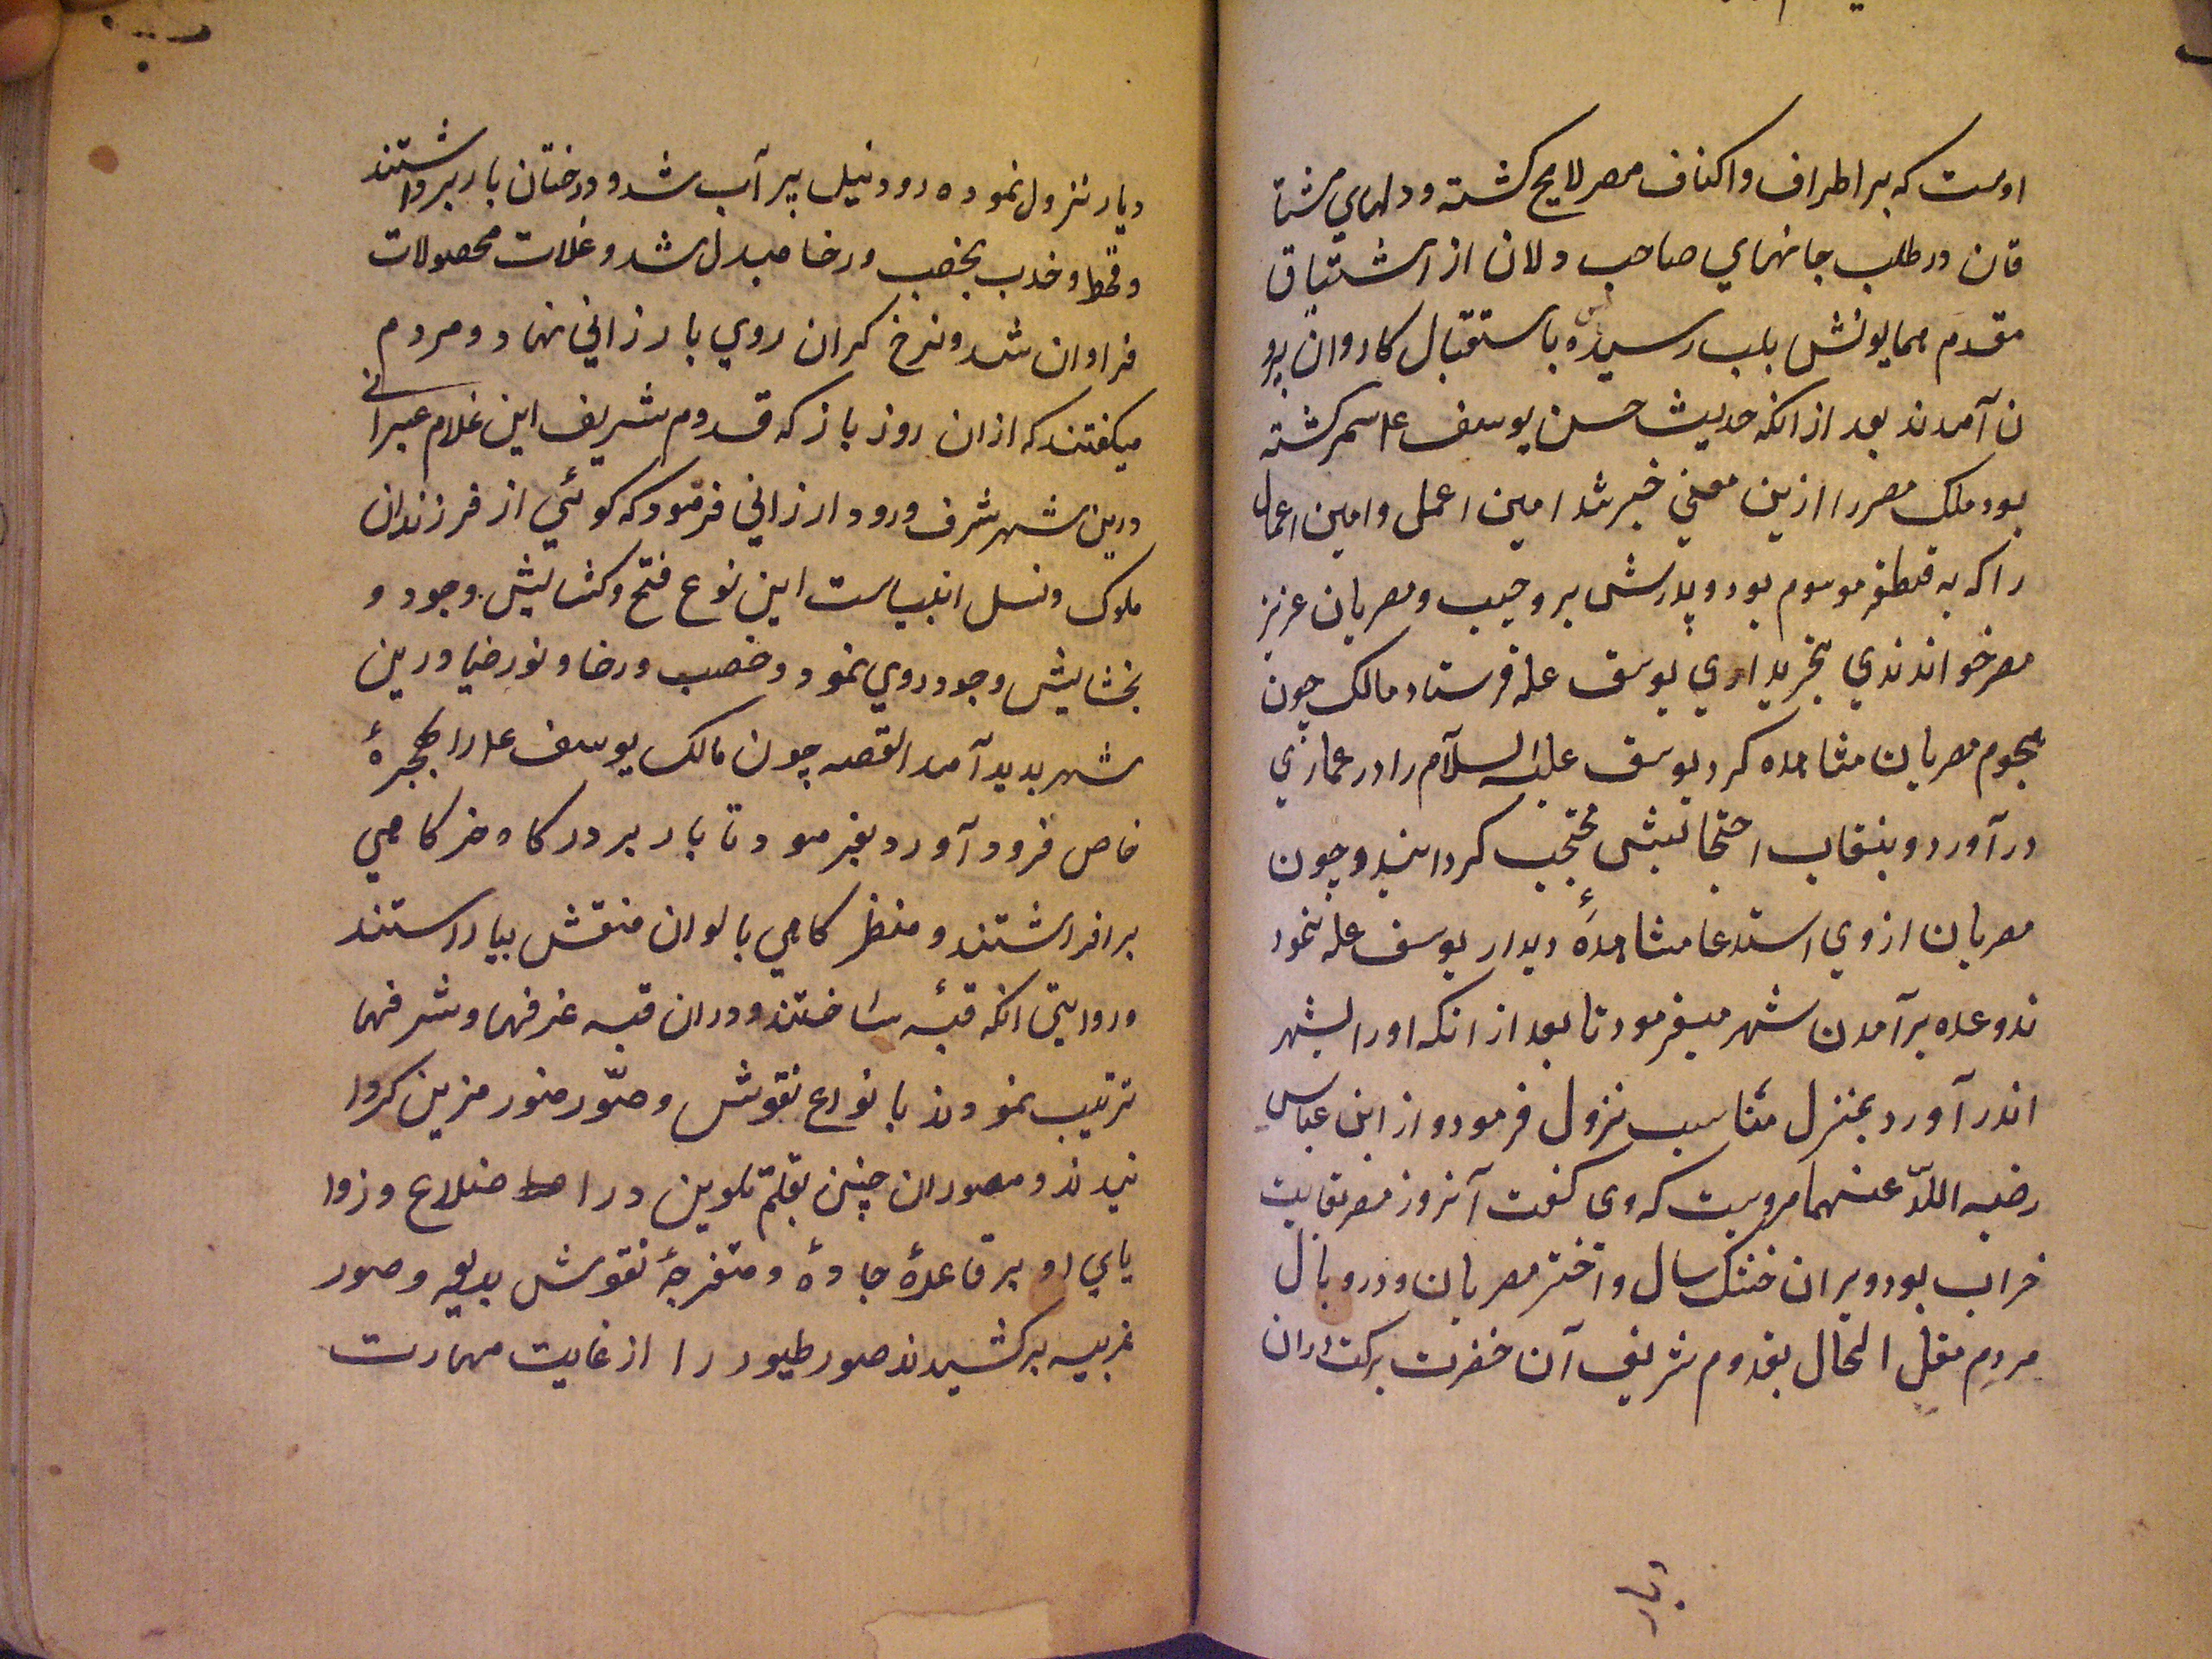 اوست که بر اطراف و اکناف مصر لایح کشته و دلهای مشتا
قان در طلب جانهای صاحب دلان از اشتیاق
مقدم همایونش بلب رسیده باستقبال کاروان برو
ن آمدند بعد از انکه حدیث حسن یوسف عا سمر کشته
بود ملک مصر را ازین معنی خبر شد امین اعمل و امین اعمال
را که به قطفر موسوم بود و پدرش بر وحیب و مصریان عزیز
مصر خواندندی بخریداری یوسف علم فرستاد مالک چون
هجوم مصریان مشاهده کرد یوسف علیه السلام را در عماری
در آورد و بنقاب احتجابش محتجب کردانید و چون
مصریان از وی استدعا مشاهدهٔ دیدار یوسف علم نمود
ند وعده بر آمدن شهر میفرمود تا بعد از انکه او را بشهر
اندر آورد بمنزل مناسب نزول فرمود و از ابن عباس
رضیه اللّه عنهما مرویست که وی کفت آنروز مصر بغایت
خراب بود و بران خشک سال و اختر مصریان در وبال
مردم مقل الحال بقدوم شریف آن حضرت برکت دران
دیار
دیار نزول نموده رود نیل پر آب شد و درختان بار برداشتند
و قحط و خدب بخصب و رخا مبدل شد و غلات محصولات
فراوان شد و نرخ کران روی بارزانی نهاد و مردم
میکفتند که ازان روز باز که قدوم شریف این غلام عبرانی
درین شهر شرف ورود ارزانی فرمود که کوئی از فرزندان
ملوک و نسل انبیاست این نوع فتح و کشایش وجود و
بخشایش وجود روی نمود و خصب و رخا و نور ضیا درین
شهر بدید آمد القصه چون مالک یوسف عا را بحجرهٔ
خاص فرود آورد بفرمود تا بار بر درکاه خرکاهی
برافراشتند و منظر کاهی بالوان منقش بیاراستند
و روایتی انکه قبّه ساختند و دران قبه غرفها و شرفها
ترتیب نمودند بانواع نقوش و صوّر منور مزین کردا
نیدند و مصوران چینی بقلم تلوین در اضلاع و زوا
یای او بر قاعدهٔ جادهٔ و متفرجهٔ نقوش بدیعه و صور
غریبه برکشیدند صور طیور را از غایت مهارت